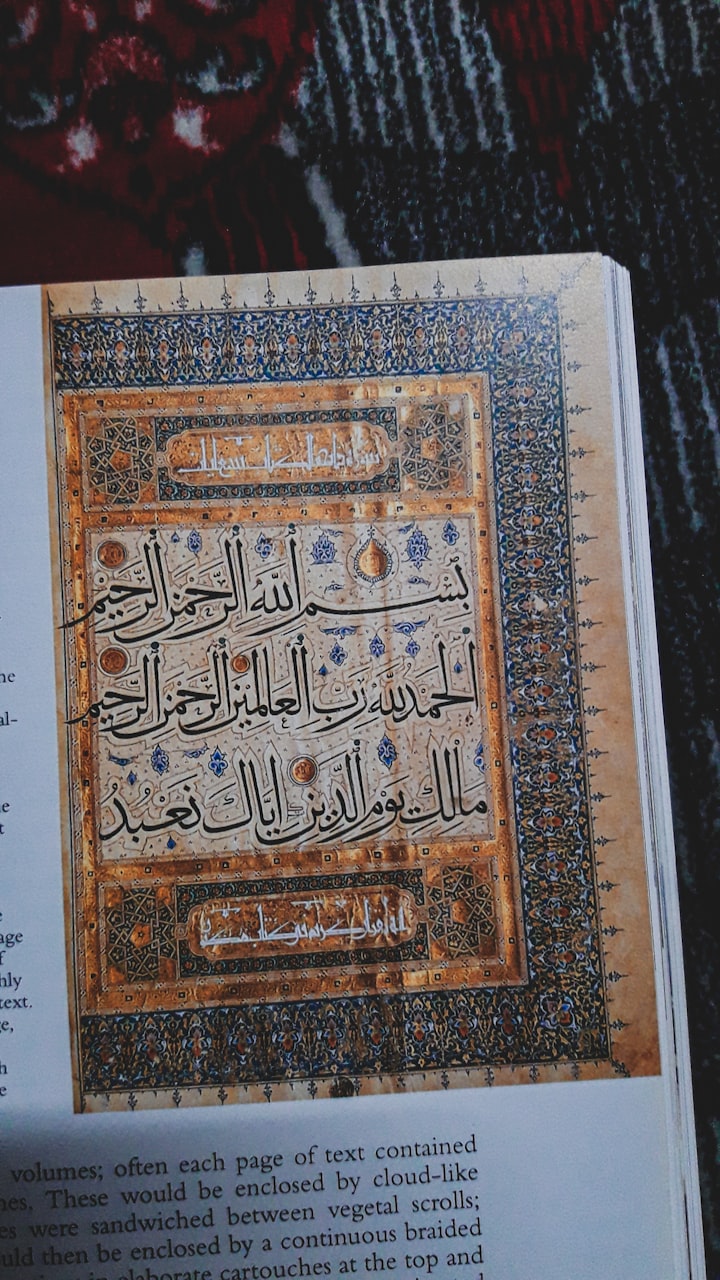 سورة فاتحة الكتاب سبع آيات
بِسْمِ اللَّهِ الرَّحْمٰنِ الرَّحِيمِ
الْحَمْدُ لِلَّهِ رَبِّ الْعَالَمِينَ الرَّحْمٰنِ الرَّحِيمِ
مَالِكِ يَوْمِ الدِّينِ إِيَّاكَ نَعْبُدُ
he
al-
e
t
e
age
f
hly
text.
e,
h
e
volumes; often each page of text contained
nes. These would be enclosed by cloud-like
es were sandwiched between vegetal scrolls;
uld then be enclosed by a continuous braided
elaborate cartouches at the top and